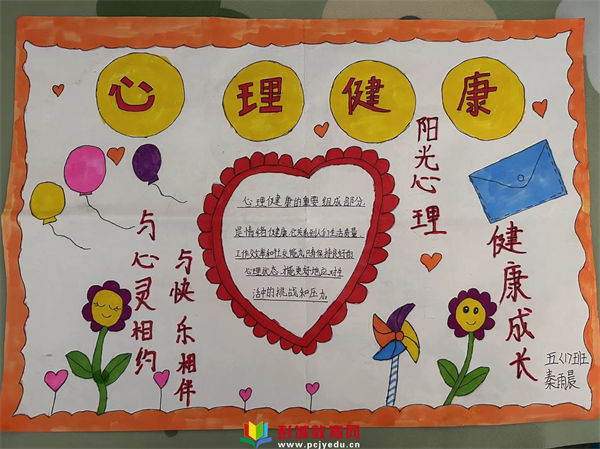 心理健康
阳光心理
健康成长
与心灵相约
与快乐相伴
心理健康的重要组成部分,
是情绪健康,它关系到人们生活质量,
工作效率和社交能力,只有保持良好的
心理状态,才能更好地应对生
活中的挑战和压力。
五(7)班
秦雨晨
教育网
www.pcjyedu.cn